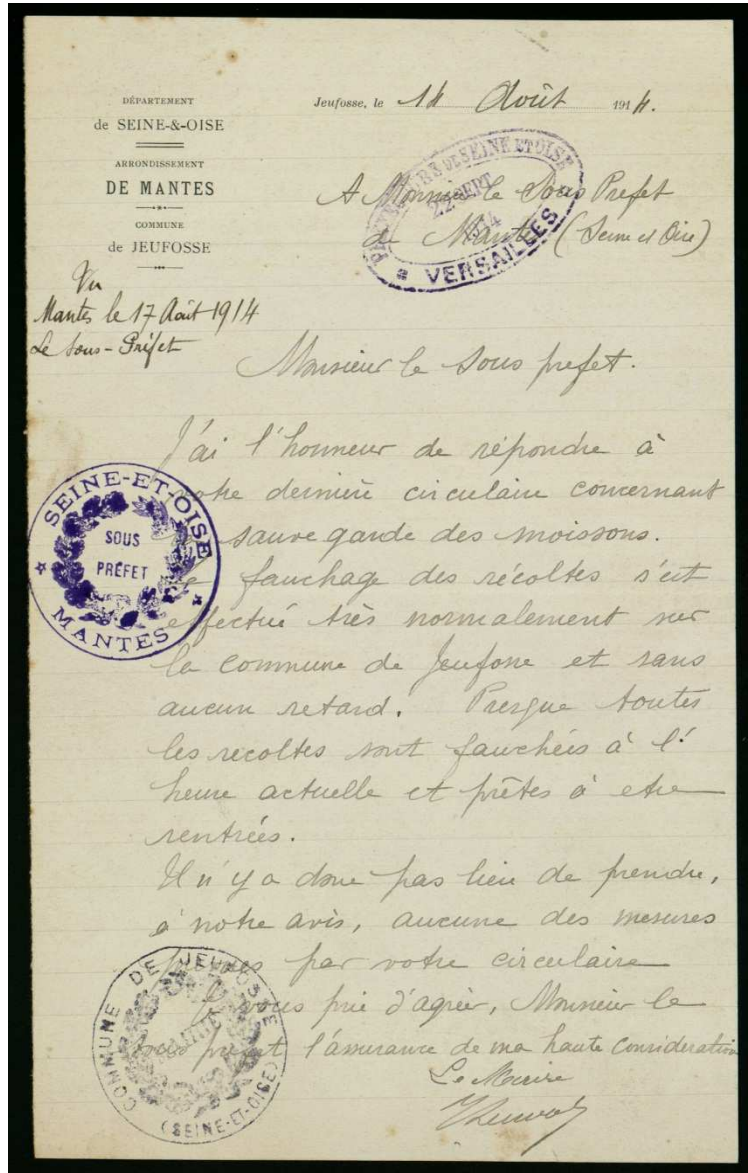 DÉPARTEMENT
de SEINE-&-OISE
ARRONDISSEMENT
DE MANTES
COMMUNE
de JEUFOSSE
Jeufosse, le 14 Août 1914.
A Monsieur le Sous Prefet
de Mantes (Seine et Oise)
PREFECTURE DE SEINE ET OISE
22 SEPT
1914
* VERSAILLES
Vu
Mantes le 17 Août 1914
Le Sous-Préfet
Monsieur le Sous prefet.
J'ai l'honneur de répondre à
votre dernière circulaire concernant
sauvegarde des moissons.
fauchage des récoltes s'est
effectué très normalement sur
la commune de Jeufosse et sans
aucun retard. Presque toutes
les recoltes sont fauchées à l'
heure actuelle et prêtes à etre
rentrées.
Il n'y a donc pas lieu de prendre,
à notre avis, aucune des mesures
par votre circulaire
vous prie d'agréer, Monsieur le
sous prefet l'assurance de ma haute consideration
Le Maire
SEINE-ET-OISE
SOUS
PRÉFET
* MANTES *
COMMUNE DE JEUFOSSE
MAIRIE
(SEINE-ET-OISE)